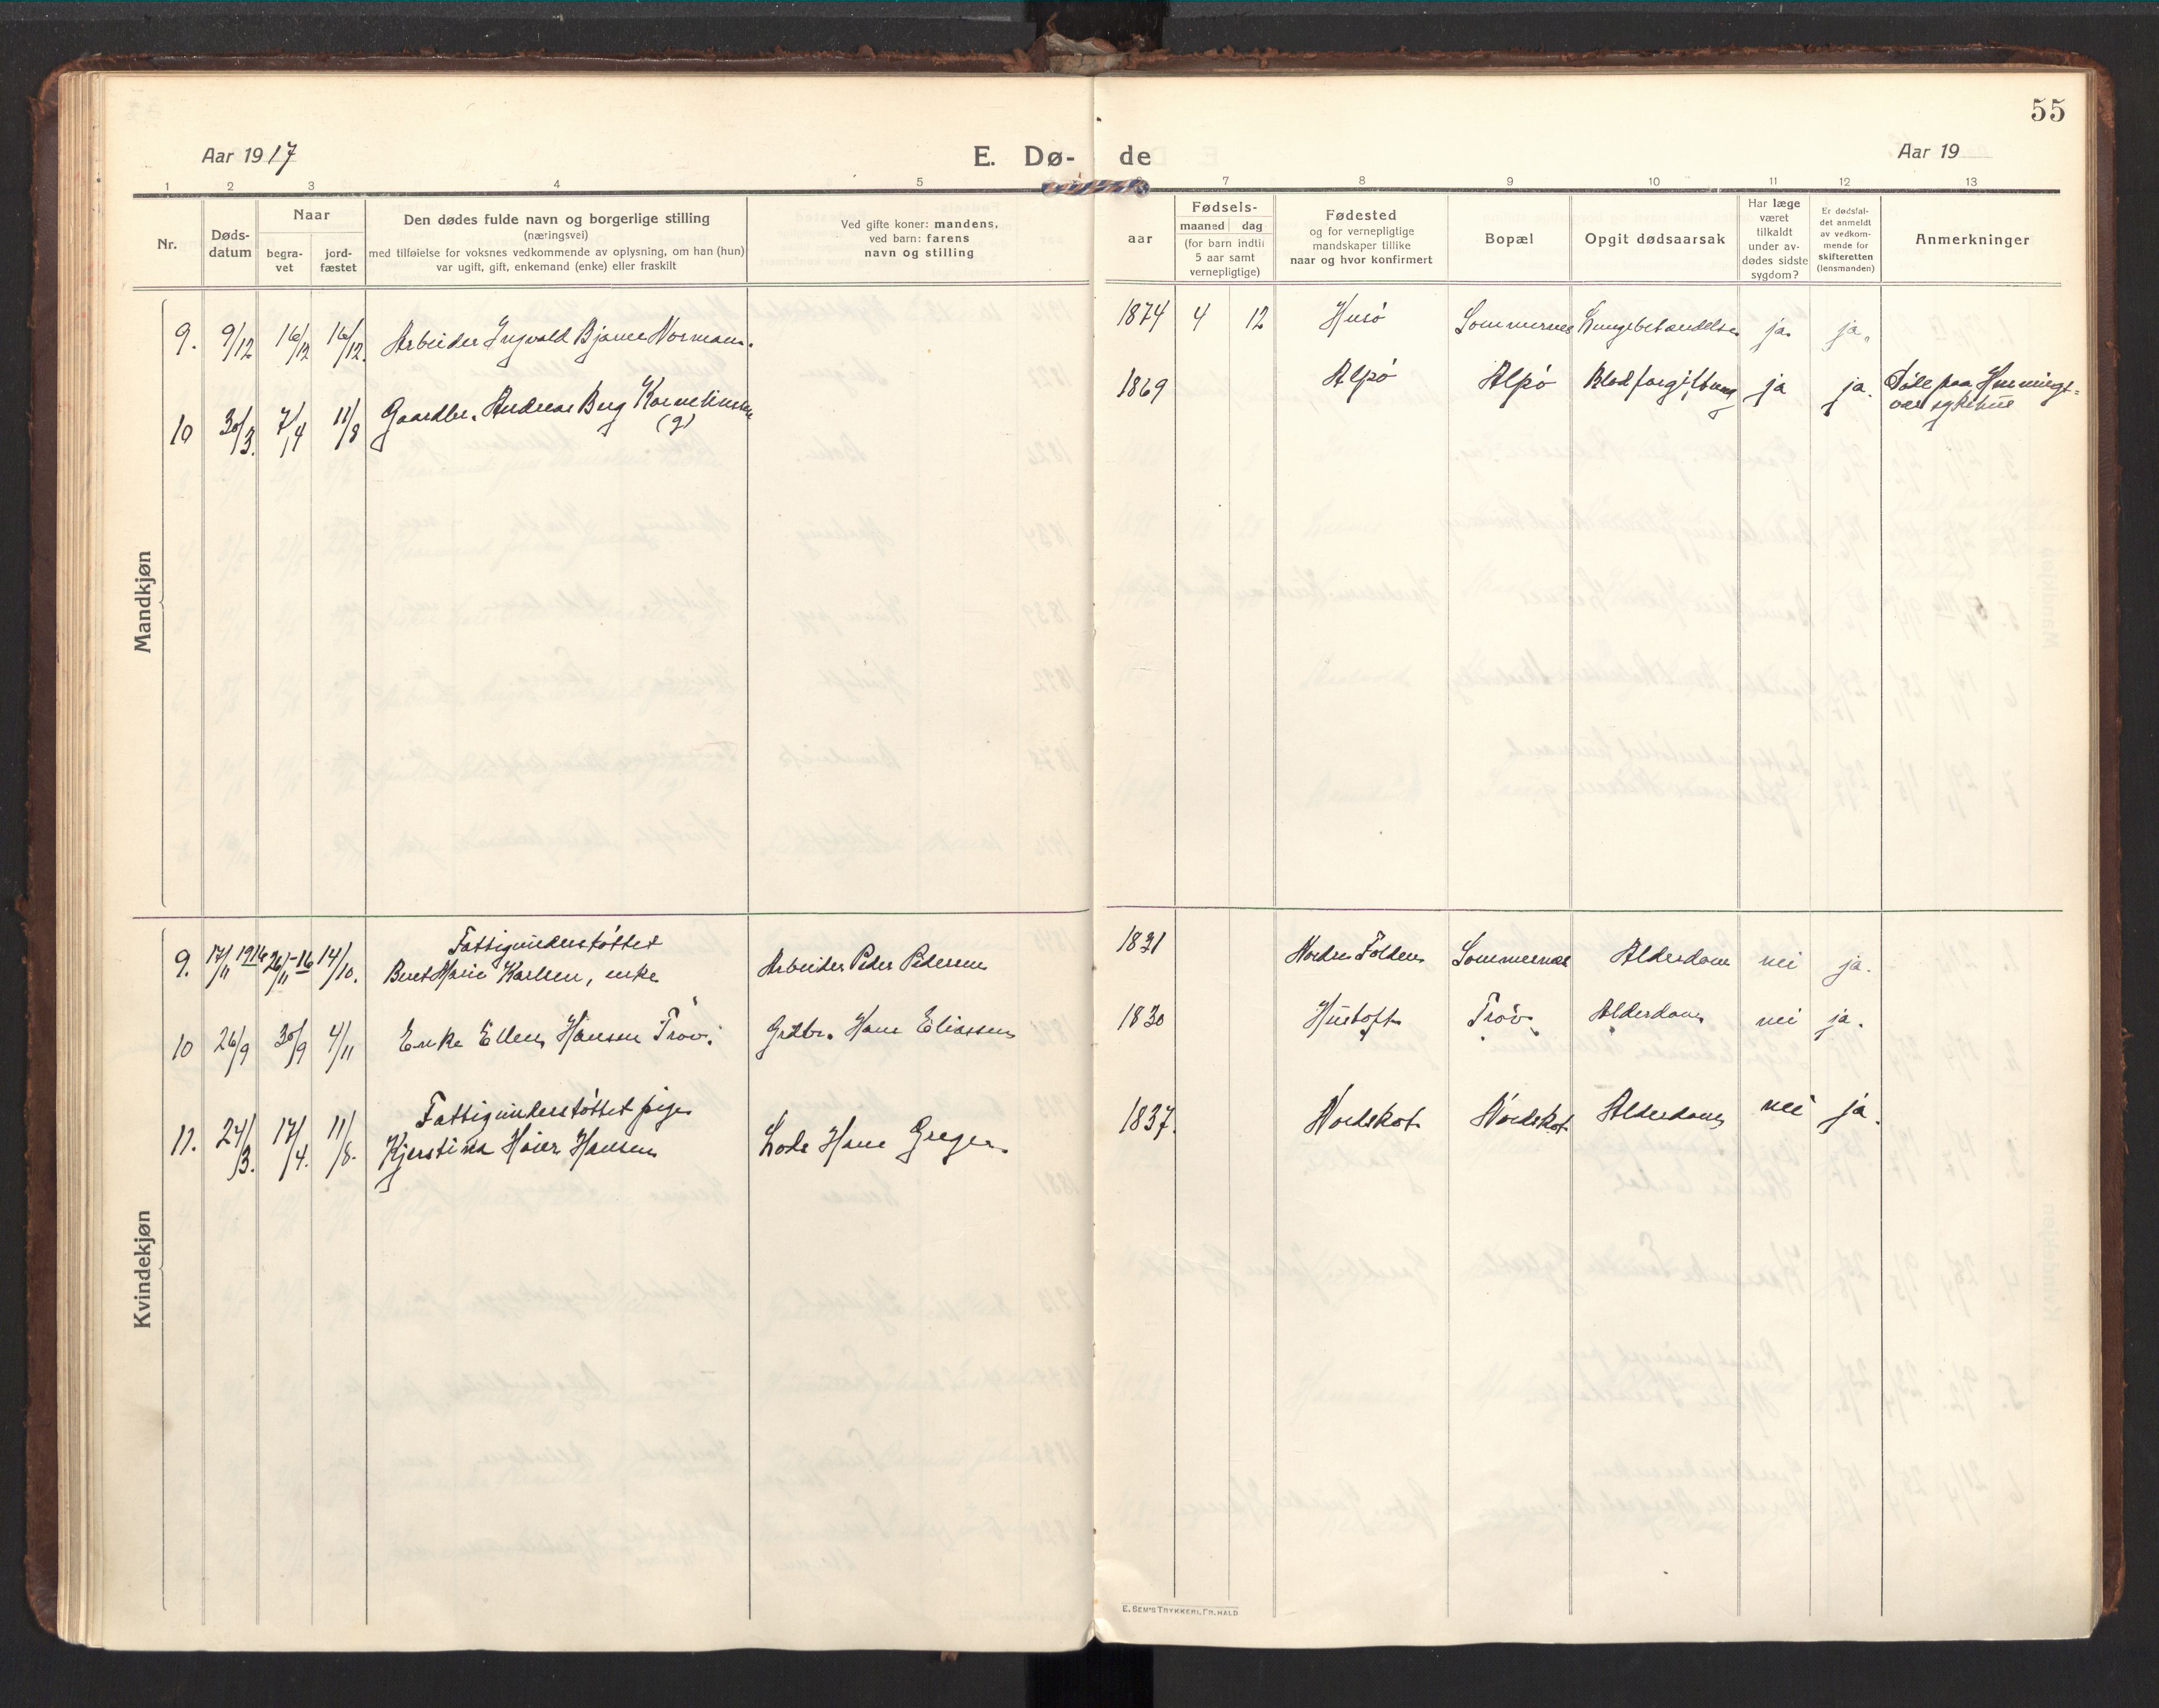 55
Aar 1917
E. Dø-
de
Aar 19
1 2 3 4 5 6 7 8 9 10 11 12 13
Nr.
Døds-
datum
Naar
begra-
vet
jord-
fæstet
Den dødes fulde navn og borgerlige stilling
(næringsvei)
med tilføielse for voksnes vedkommende av oplysning, om han (hun)
var ugift, gift, enkemand (enke) eller fraskilt
Ved gifte koner: mandens,
ved barn: farens
navn og stilling
aar
Fødsels-
maaned dag
(for barn indtil
5 aar samt
vernepligtige)
Fødested
og for vernepligtige
mandskaper tillike
naar og hvor konfirmert
Bopæl
Opgit dødsaarsak
Har læge
været
tilkaldt
under av-
dødes sidste
sygdom?
Er dødsfal-
det anmeldt
av vedkom-
mende for
skifteretten
(lensmanden)
Anmerkninger
Mandkjøn
9. 9/12 16/12 16/12. Arbeider Ingvald Bjarne Normann. 1874 4 12 Husö Sommernes Lungebetændelse ja. ja.
10 30/3. 7/4 11/8 Gaardbr. Andreas Berg Kornelius­sen 1869 Alpö Alpö Blodforgiftning ja ja. Döde paa Hennings-
(g) vær sykehus
Kvindekjøn
Fattigunderstöttet
9. 17/11 1916 26/11-16 14/10. Beret Marie Karlsen, enke Arbeider Peder Pedersen 1831 Nordre Folden Sommernes Alderdom nei ja.
10 26/9 30/9 4/11 Enke Ellen Hansen Tröv. Grdbr. Hans Eliassen 1830 Hustoft Tröv Alderdom nei ja.
Fattigunderstöttet pige
11. 24/3. 17/4. 11/8. Kjerstina Hansen Lods Hans Greger 1837. Nordskot Nordskot Alderdom nei ja.
E. SEM'S TRYKKERI, FR.HALD